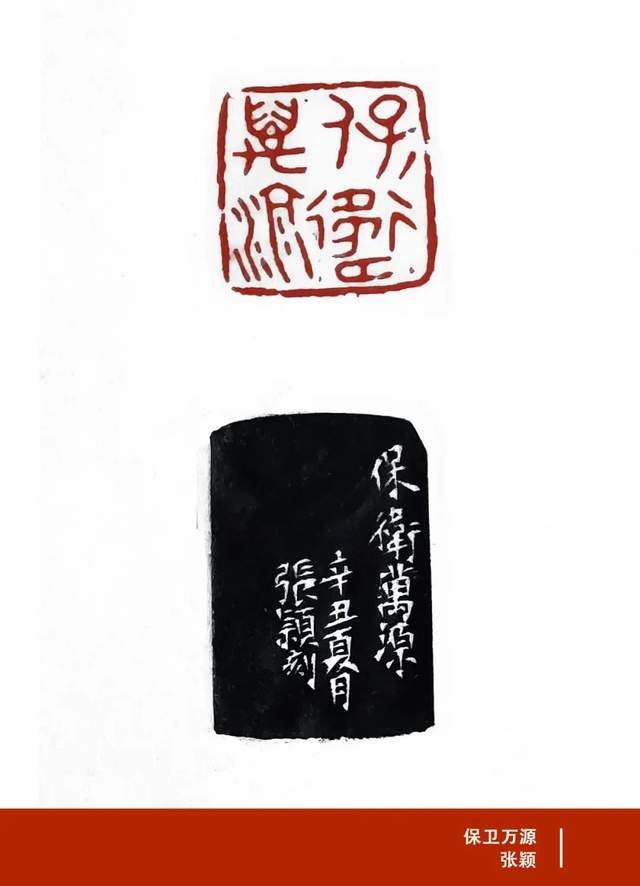 保衛萬源
保衛萬源
辛丑夏月
張穎刻
保卫万源
张颖